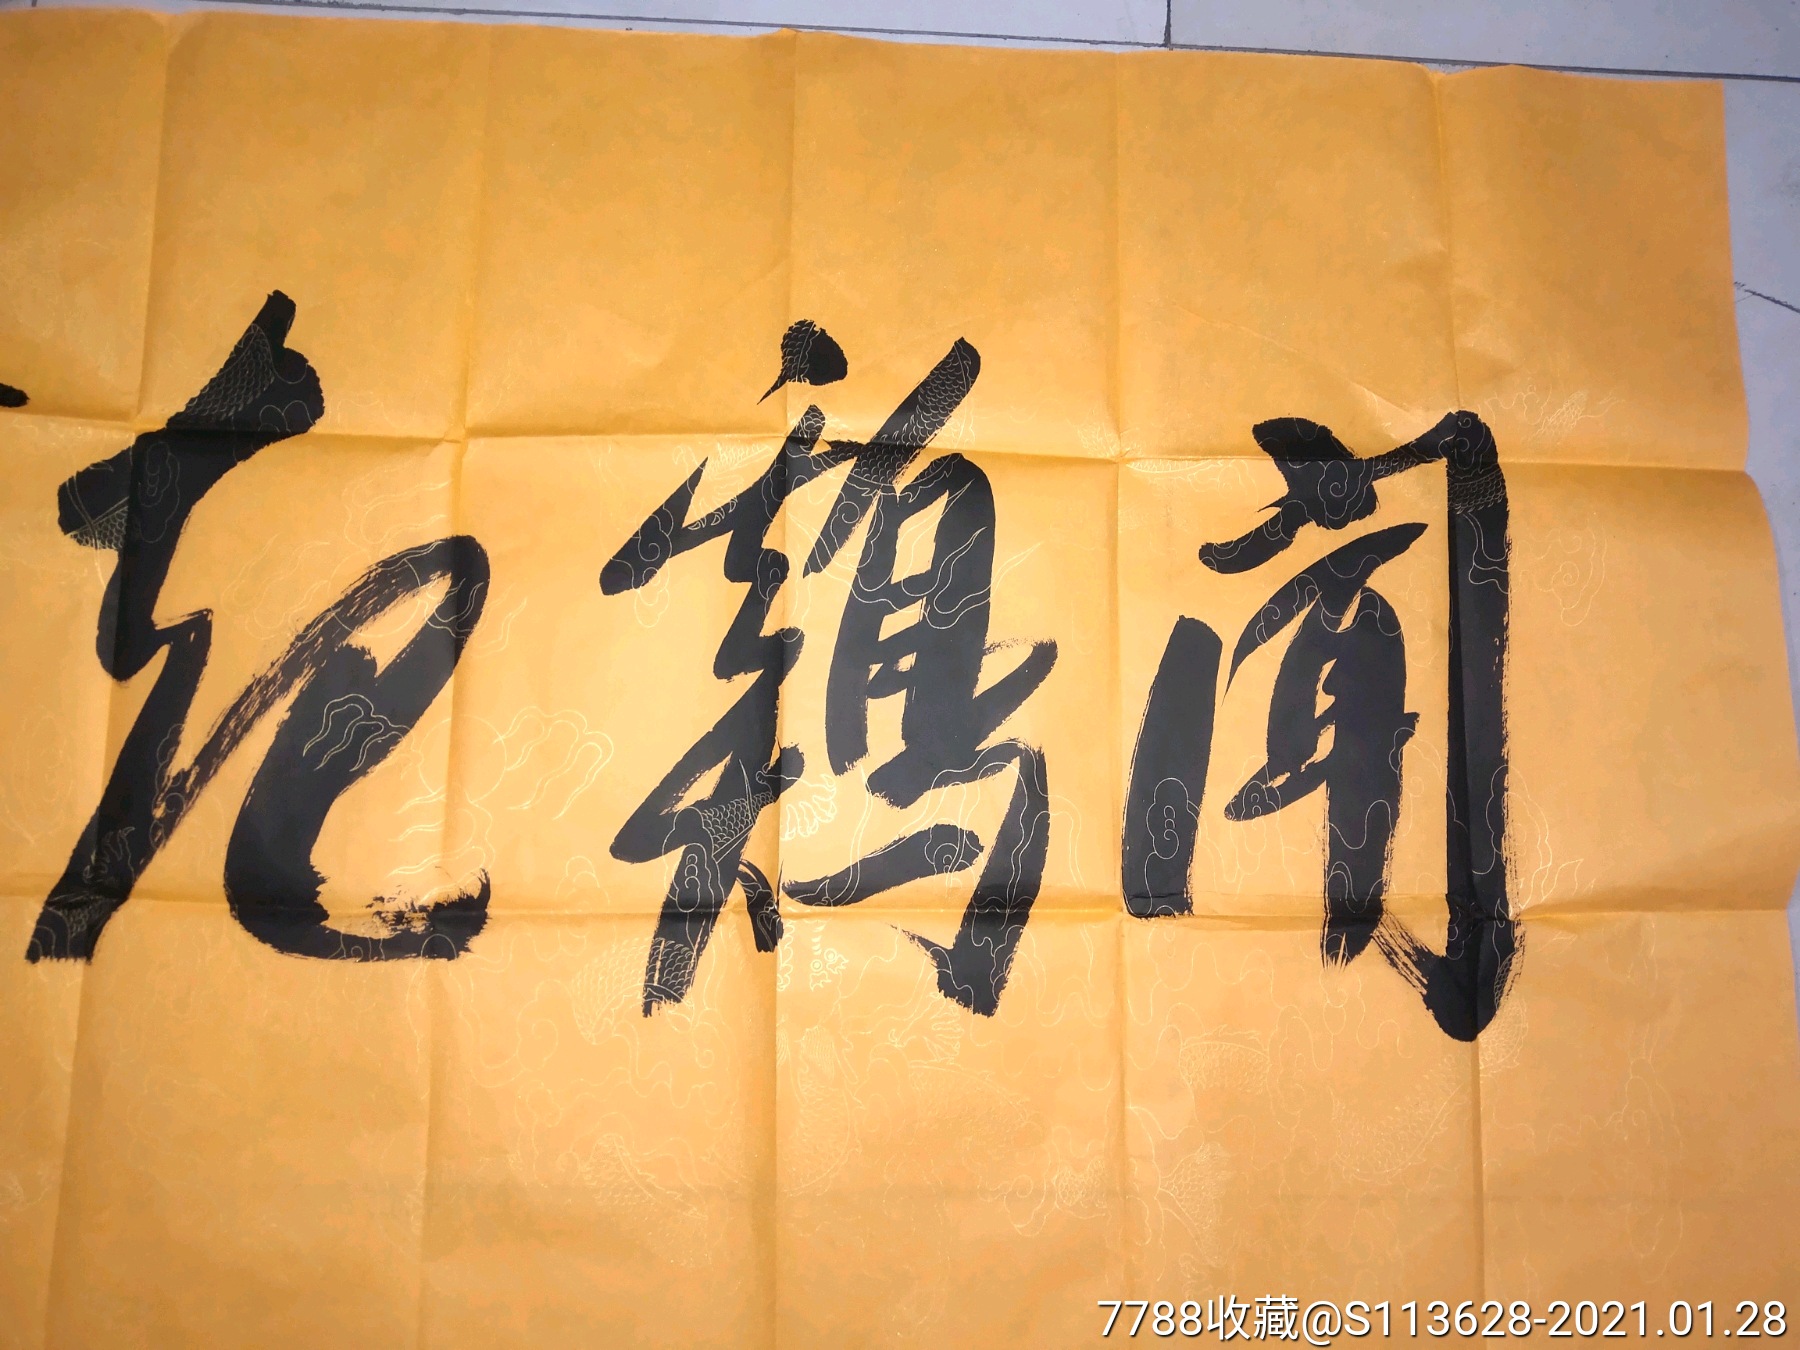 闻鷄起
7788收藏@S113628-2021.01.28